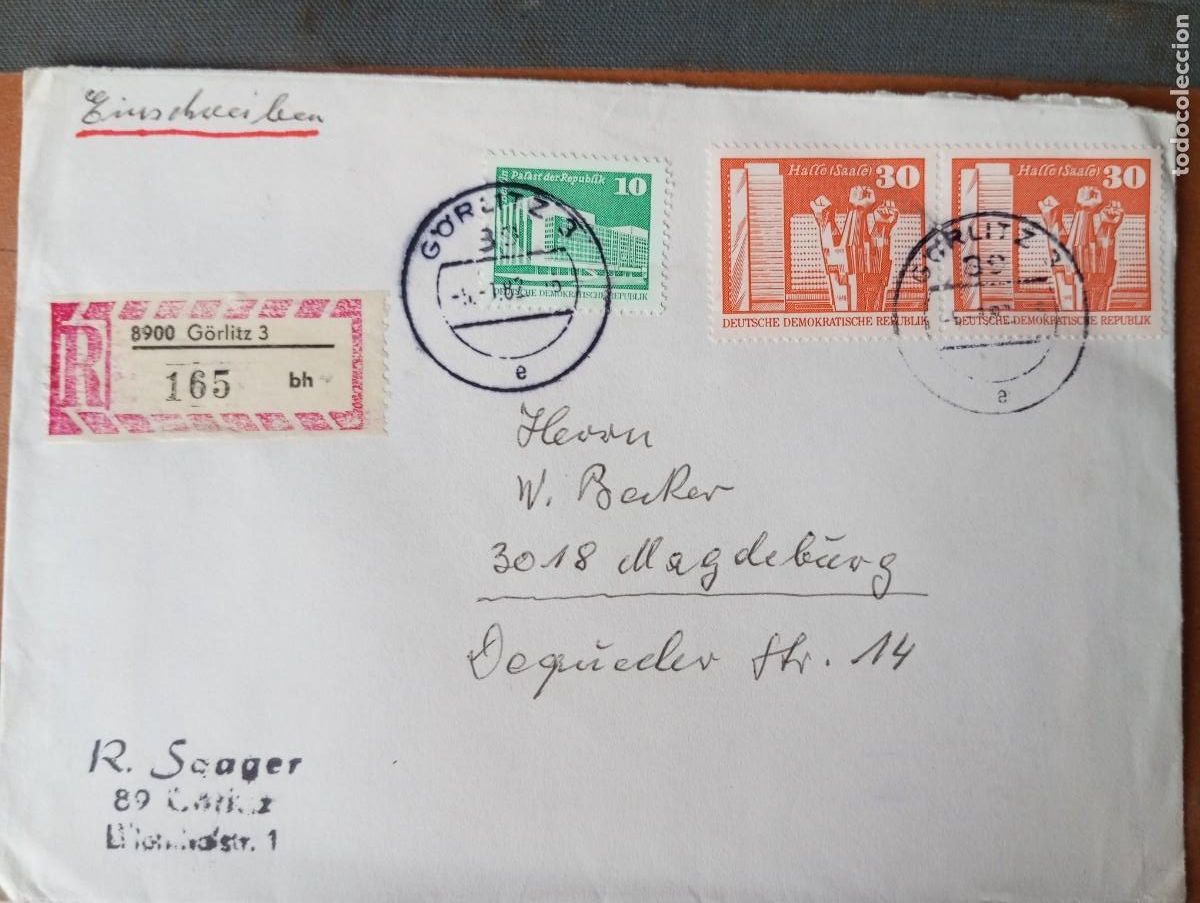 Einschreiben
Palast der Republik 10
DEUTSCHE DEMOKRATISCHE REPUBLIK
Halle (Saale) 30
DEUTSCHE DEMOKRATISCHE REPUBLIK
Halle (Saale) 30
DEUTSCHE DEMOKRATISCHE REPUBLIK
GÖRLITZ 3
e
GÖRLITZ 3
e
R
8900 Görlitz 3
165 bh
Herrn
W. Becker
3018 Magdeburg
Dequeder Str. 14
R. Saager
89 Görlitz
1
todocoleccion